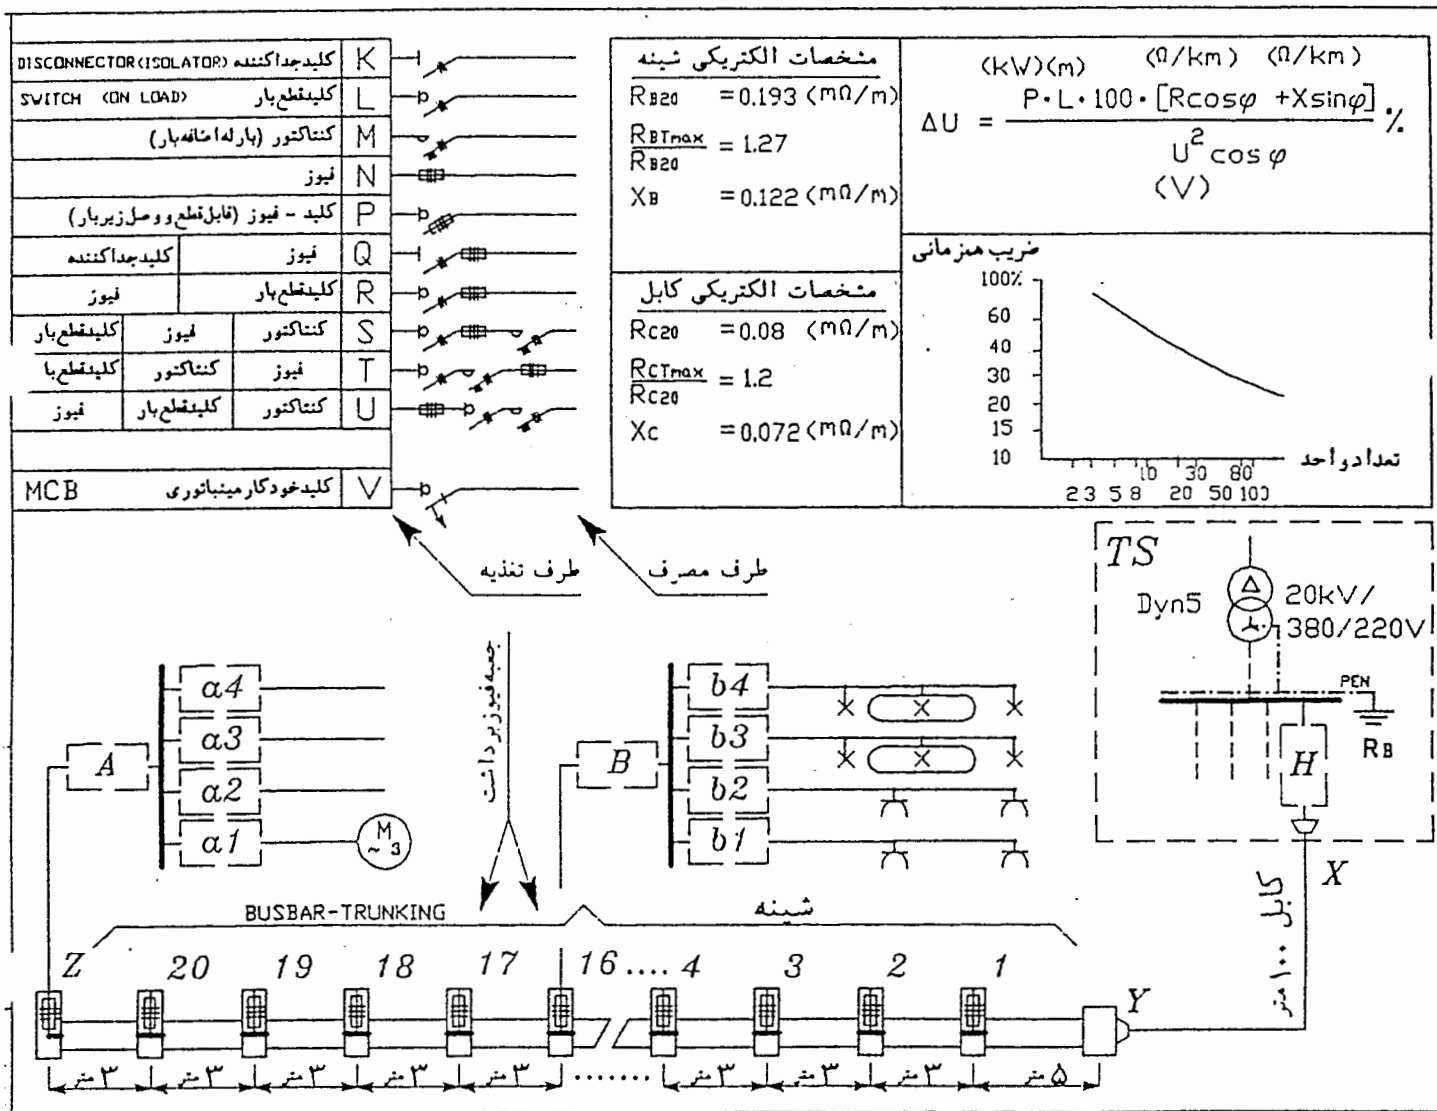 DISCONNECTOR(ISOLATOR) کلیدجداکننده K
SWITCH (ON LOAD) کلیدقطع بار L
کنتاکتور (بارله اضافه بار) M
فیوز N
کلید - فیوز (قابل قطع و وصل زیربار) P
کلیدجداکننده فیوز Q
فیوز کلیدقطع بار R
کلیدقطع بار فیوز کنتاکتور S
کلیدقطع با کنتاکتور فیوز T
فیوز کلیدقطع بار کنتاکتور U
MCB کلیدخودکارمینیاتوری V
طرف تغذیه
طرف مصرف
مشخصات الکتریکی شینه
RB20 = 0.193 (mΩ/m)
RBTmax/RB20 = 1.27
XB = 0.122 (mΩ/m)
مشخصات الکتریکی کابل
RC20 = 0.08 (mΩ/m)
RCTmax/RC20 = 1.2
XC = 0.072 (mΩ/m)
(kW)(m) (Ω/km) (Ω/km)
ΔU = P·L·100·[Rcosφ +Xsinφ] / U² cosφ %
(V)
ضریب همزمانی
100%
60
40
30
20
15
10
10 30 80
2 3 5 8 20 50 100
تعداد واحد
TS
Dyn5
20kV/
380/220V
PEN
RB
H
X
کابل ۱۰۰ متر
A
a4
a3
a2
a1
M
~ 3
جعبه فیوز برداشت
B
b4
b3
b2
b1
BUSBAR-TRUNKING شینه
Z 20 19 18 17 16 .... 4 3 2 1 Y
۳ متر ۳ متر ۳ متر ۳ متر ۳ متر ....... ۳ متر ۳ متر ۳ متر ۵ متر